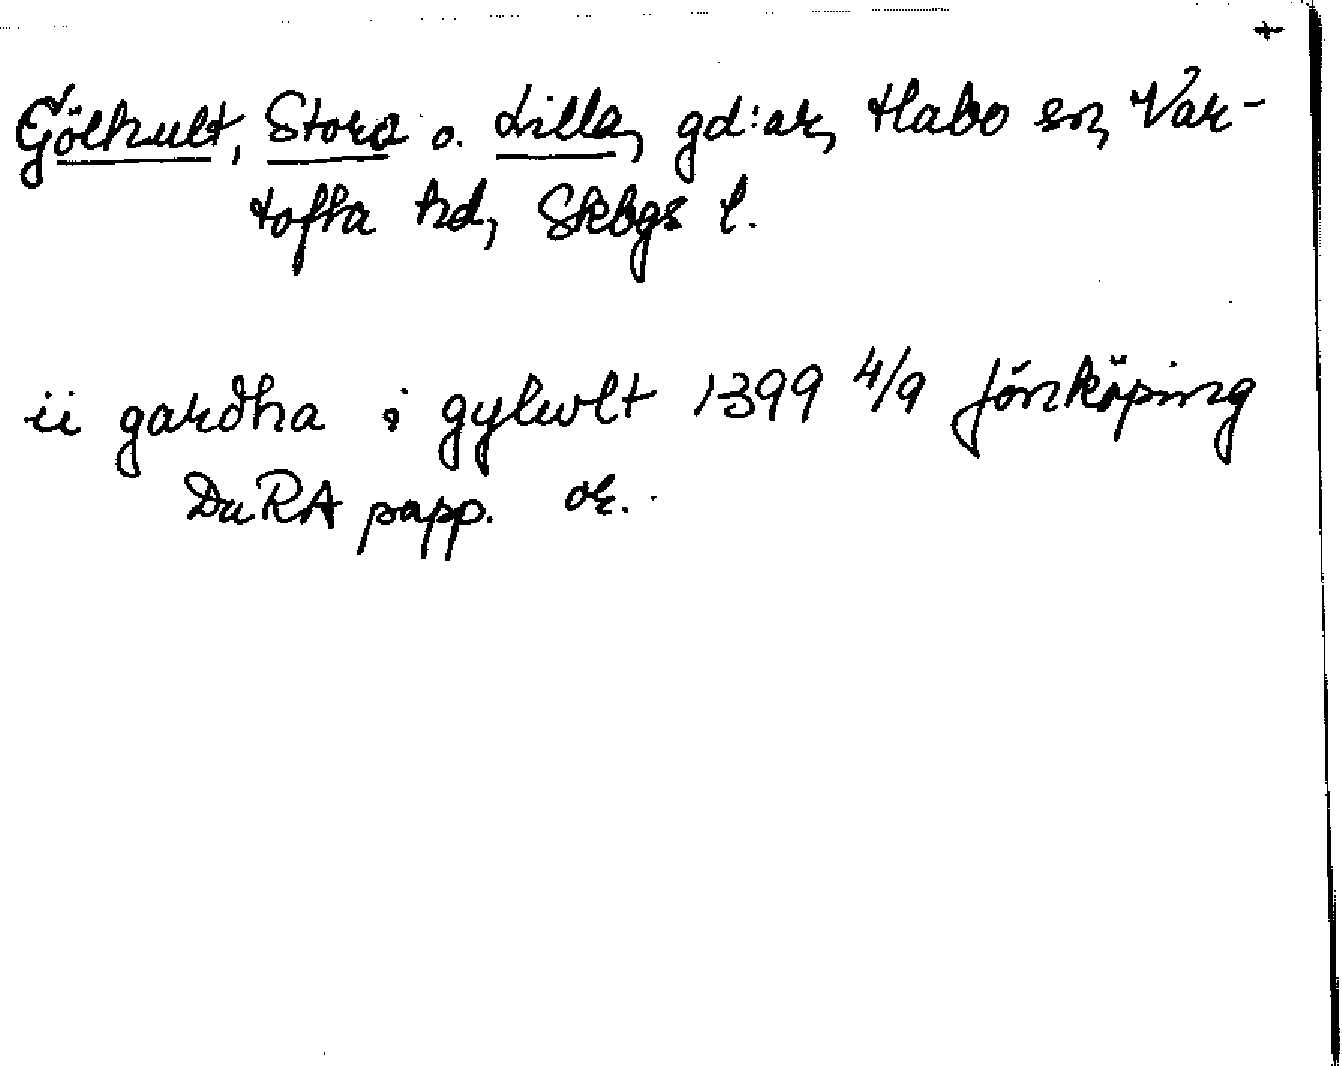 +
Gölhult, Stora o. Lilla, gd:ar, Habo sn, Var-
tofta hd, Skbgs l.
ii gardha i gylwlt 1399 4/9 Jönköping
DuRA papp. or.